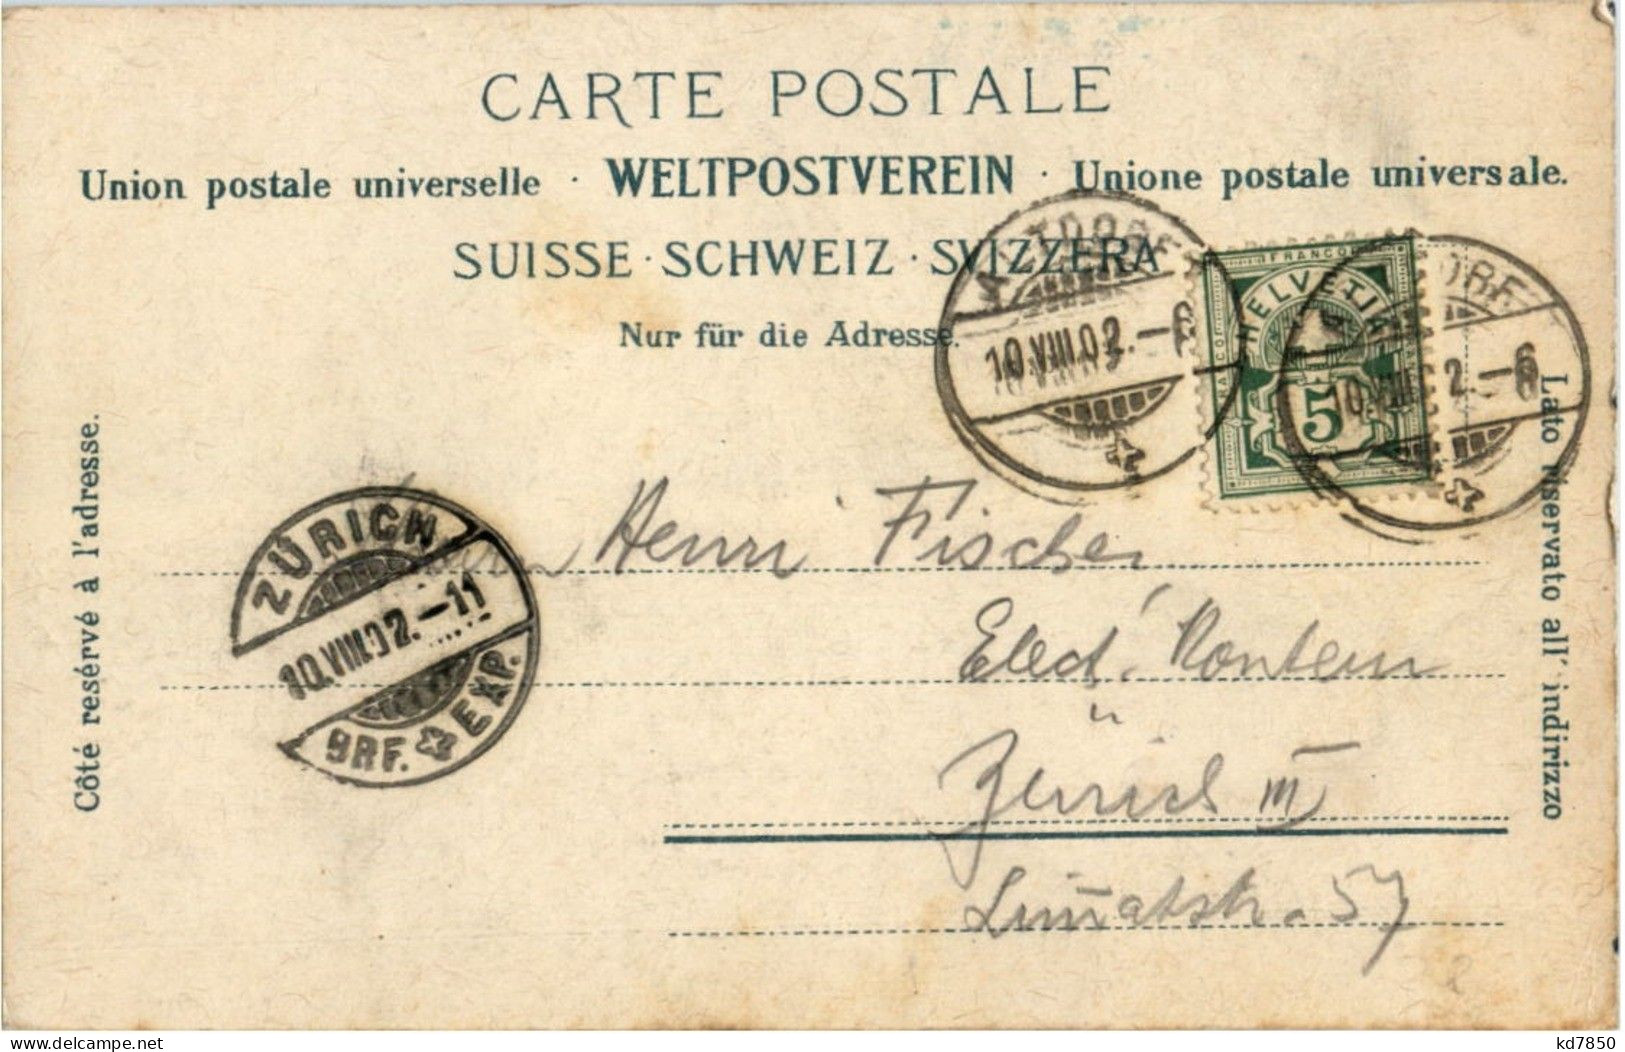 CARTE POSTALE
Union postale universelle · WELTPOSTVEREIN · Unione postale universale.
SUISSE · SCHWEIZ · SVIZZERA
Nur für die Adresse.
ALTDORF
10.VIII.02.–6
FRANCO
HELVETIA
5
DORF
10.VIII. 2.–6
Côté resérvé à l'adresse.
Lato riservato all' indirizzo
ZÜRICH
10.VIII.02.–11
BRF. EXP.
Henri Fischer
Elect.
Zürich III
Lim̅atstr. 57
kd7850